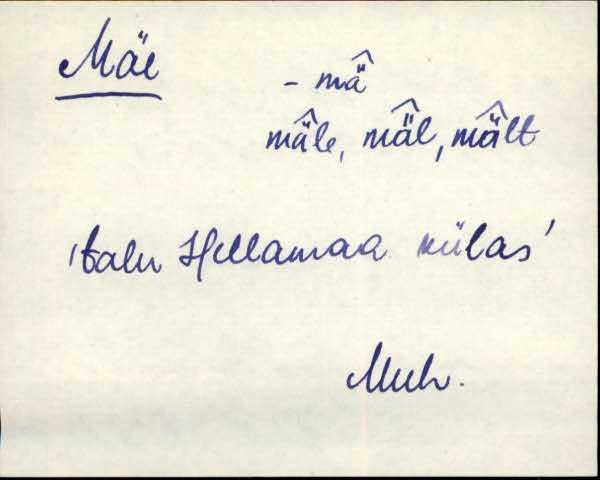 Mäe
- mä̂
mä̂le, mä̂l, mä̂lt
'talu Hellamaa külas'
Muh.